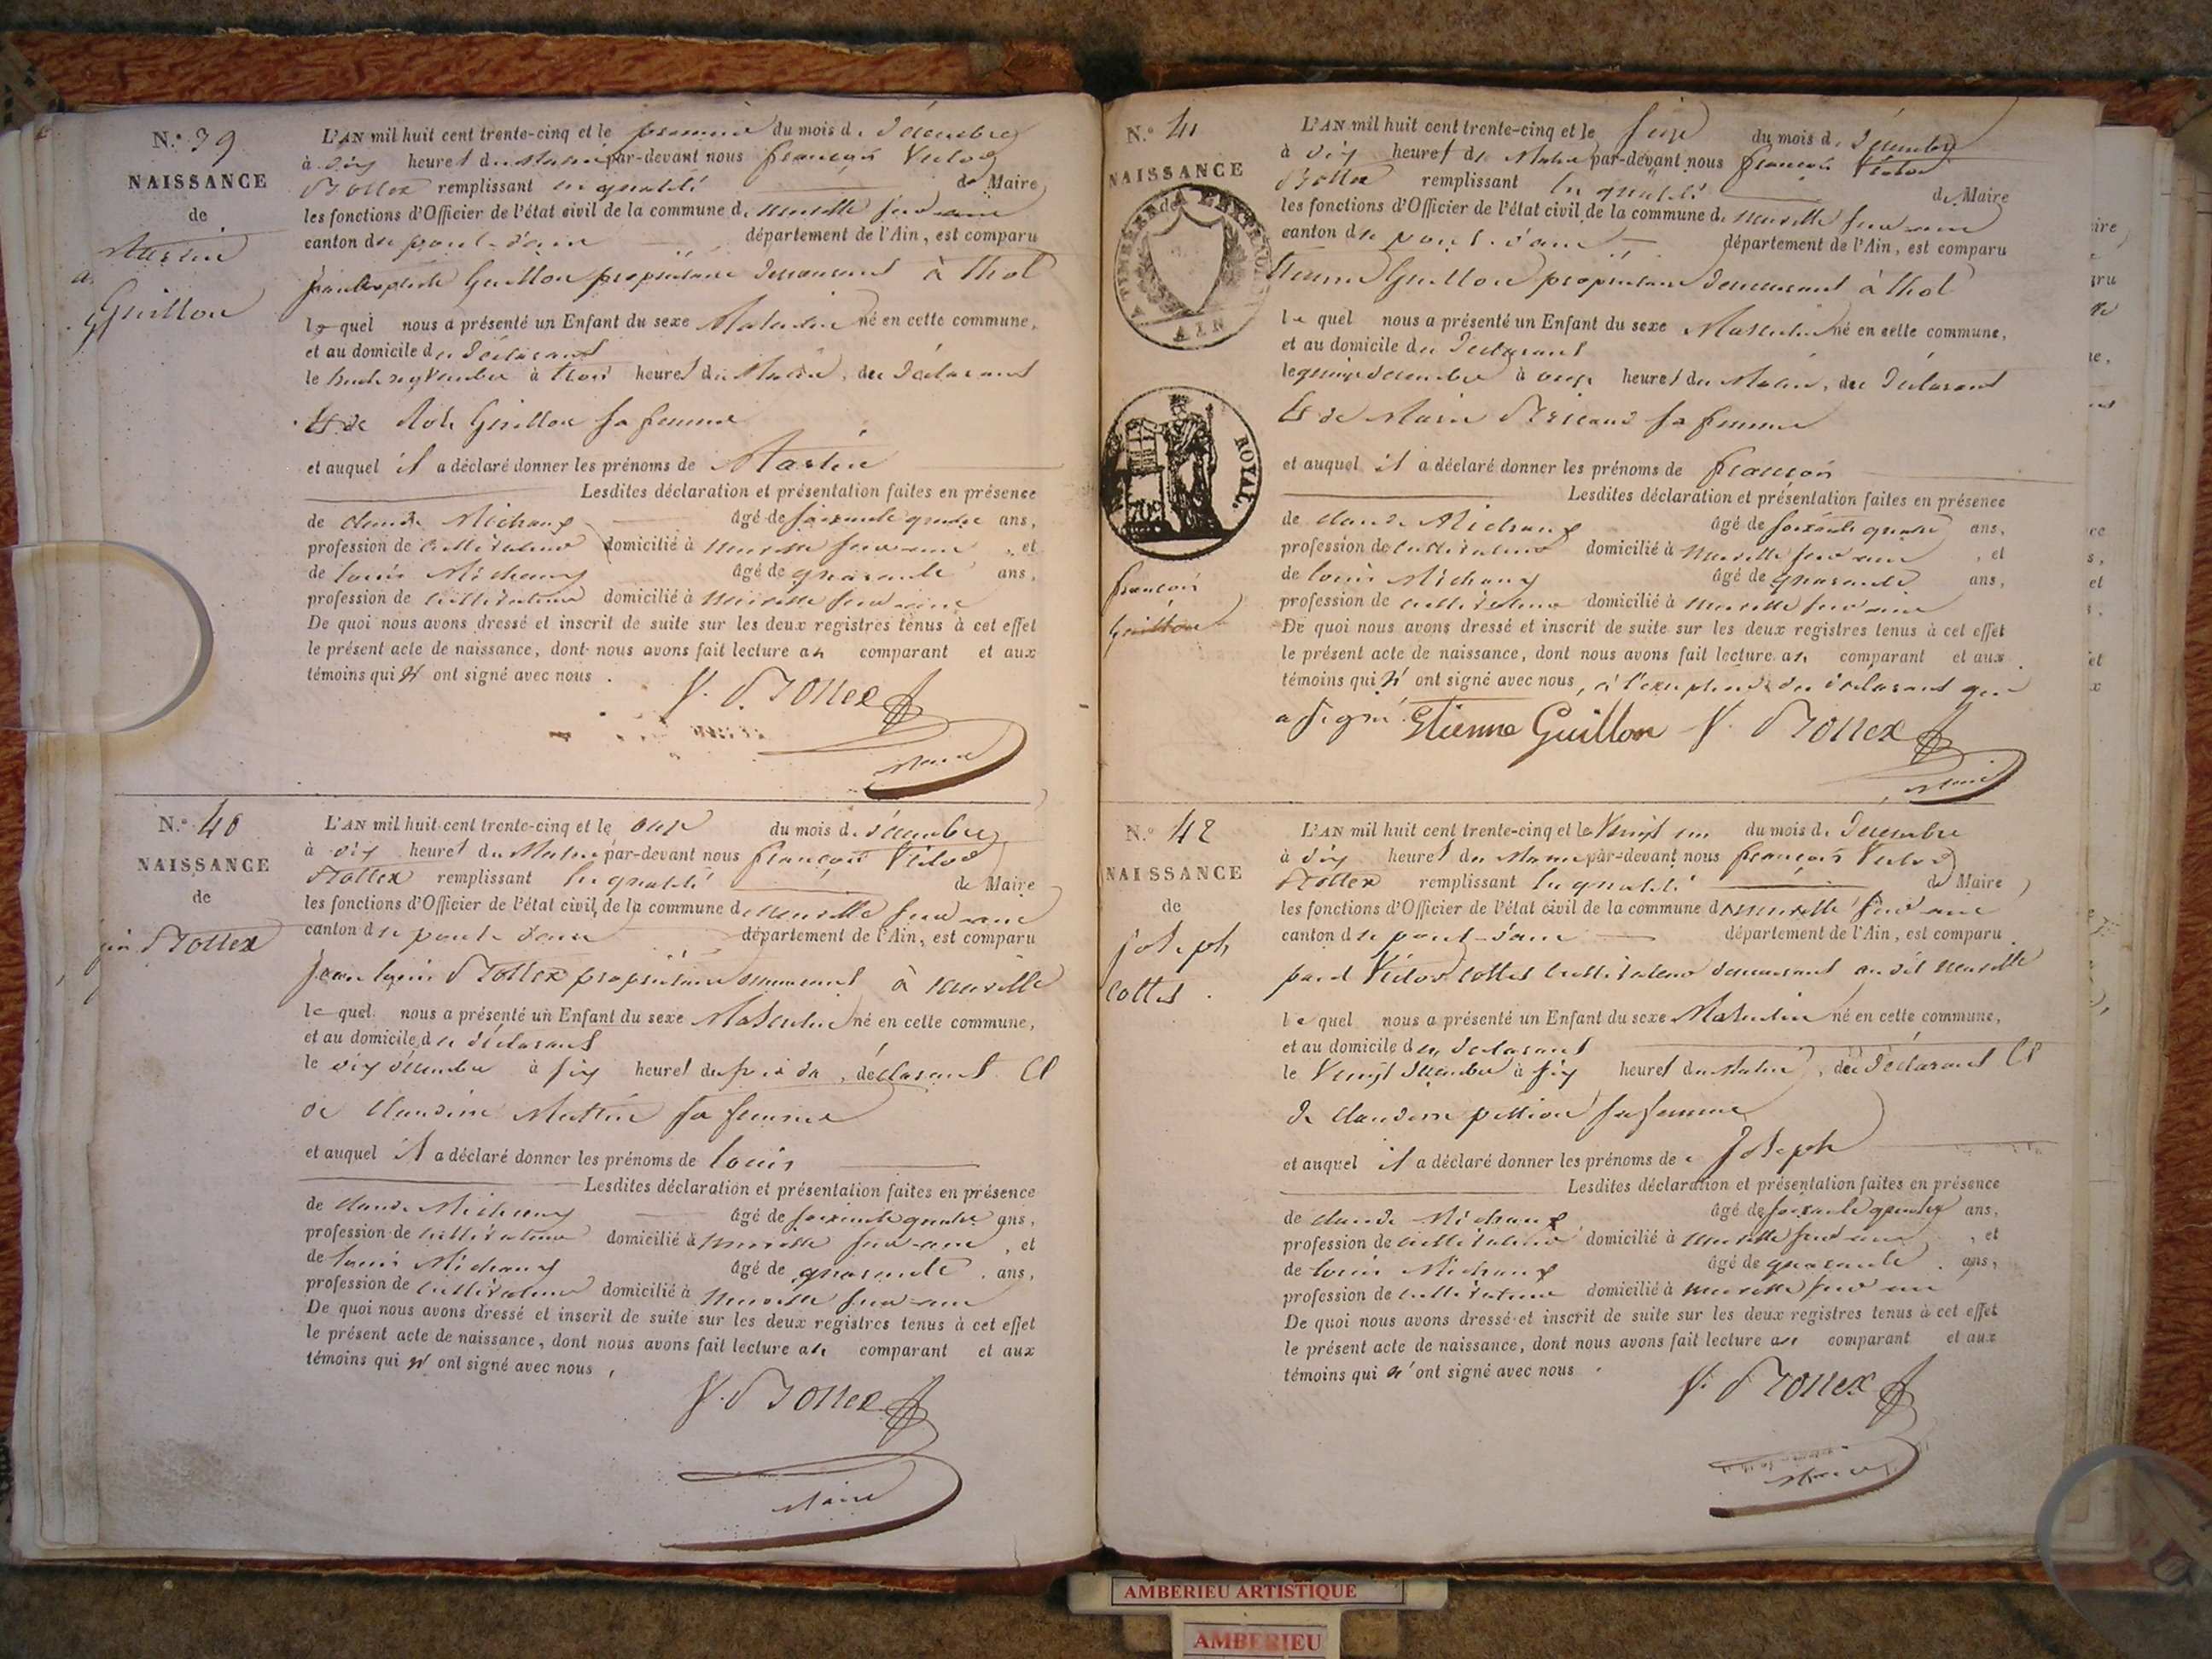 N.° 39
NAISSANCE
de
Martin
Guillon
L'AN mil huit cent trente-cinq et le premier du mois de décembre
à dix heures du matin par-devant nous françois Victor
remplissant en qualité de Maire
les fonctions d'Officier de l'état civil de la commune de neuville sur ain
canton de pont-d'ain département de l'Ain, est comparu
Jean Baptiste Guillon propriétaire demeurant à thol
le quel nous a présenté un Enfant du sexe Masculin né en cette commune,
et au domicile du déclarant
le novembre à trois heures du Matin, du déclarant
Et de Guillon sa femme
et auquel il a déclaré donner les prénoms de Martin
Lesdites déclaration et présentation faites en présence
de claude Michaux âgé de soixante quatre ans,
profession de cultivateur domicilié à neuville sur ain, et
de louis Michaux âgé de quarante ans,
profession de cultivateur domicilié à neuville sur ain
De quoi nous avons dressé et inscrit de suite sur les deux registres tenus à cet effet
le présent acte de naissance, dont nous avons fait lecture au comparant et aux
témoins qui n' ont signé avec nous.
Maire
N.° 40
NAISSANCE
de
L'AN mil huit cent trente-cinq et le onze du mois de décembre
à dix heures du Matin par-devant nous françois Victor
remplissant en qualité de Maire
les fonctions d'Officier de l'état civil de la commune de neuville sur ain
canton de pont d'ain département de l'Ain, est comparu
Jean louis propriétaire demeurant à neuville
le quel nous a présenté un Enfant du sexe Masculin né en cette commune,
et au domicile du déclarant
le dix décembre à six heures du soir du déclarant Et
de claudine sa femme
et auquel il a déclaré donner les prénoms de louis
Lesdites déclaration et présentation faites en présence
de claude Michaux âgé de soixante quatre ans,
profession de cultivateur domicilié à neuville sur ain, et
de louis Michaux âgé de quarante ans,
profession de cultivateur domicilié à neuville sur ain
De quoi nous avons dressé et inscrit de suite sur les deux registres tenus à cet effet
le présent acte de naissance, dont nous avons fait lecture au comparant et aux
témoins qui n' ont signé avec nous,
Maire
N.° 41
NAISSANCE
de
AIN
ROYAL.
françois
Guillon
L'AN mil huit cent trente-cinq et le seize du mois de décembre
à dix heures du Matin par-devant nous françois Victor
remplissant en qualité de Maire
les fonctions d'Officier de l'état civil de la commune de neuville sur ain
canton de pont-d'ain département de l'Ain, est comparu
Etienne Guillon propriétaire demeurant à thol
le quel nous a présenté un Enfant du sexe Masculin né en cette commune,
et au domicile du déclarant
le quinze décembre à onze heures du Matin, du déclarant
Et de Marie sa femme
et auquel il a déclaré donner les prénoms de françois
Lesdites déclaration et présentation faites en présence
de claude Michaux âgé de soixante quatre ans,
profession de cultivateur domicilié à neuville sur ain, et
de louis Michaux âgé de quarante ans,
profession de cultivateur domicilié à neuville sur ain
De quoi nous avons dressé et inscrit de suite sur les deux registres tenus à cet effet
le présent acte de naissance, dont nous avons fait lecture au comparant et aux
témoins qui n' ont signé avec nous, à l'exception du déclarant qui
a signé. Etienne Guillon
Maire
N.° 42
NAISSANCE
de
joseph
Cottet.
L'AN mil huit cent trente-cinq et le Vingt un du mois de décembre
à dix heures du Matin par-devant nous françois Victor
remplissant en qualité de Maire
les fonctions d'Officier de l'état civil de la commune de neuville sur ain
canton de pont-d'ain département de l'Ain, est comparu
Victor Cottet cultivateur demeurant au dit neuville
le quel nous a présenté un Enfant du sexe Masculin né en cette commune,
et au domicile du déclarant
le Vingt décembre à six heures du Matin, du déclarant Et
de claudine sa femme
et auquel il a déclaré donner les prénoms de Joseph
Lesdites déclaration et présentation faites en présence
de claude Michaux âgé de soixante quatre ans,
profession de cultivateur domicilié à neuville sur ain, et
de louis Michaux âgé de quarante ans,
profession de cultivateur domicilié à neuville sur ain
De quoi nous avons dressé et inscrit de suite sur les deux registres tenus à cet effet
le présent acte de naissance, dont nous avons fait lecture au comparant et aux
témoins qui n' ont signé avec nous.
Maire
AMBERIEU ARTISTIQUE
AMBERIEU